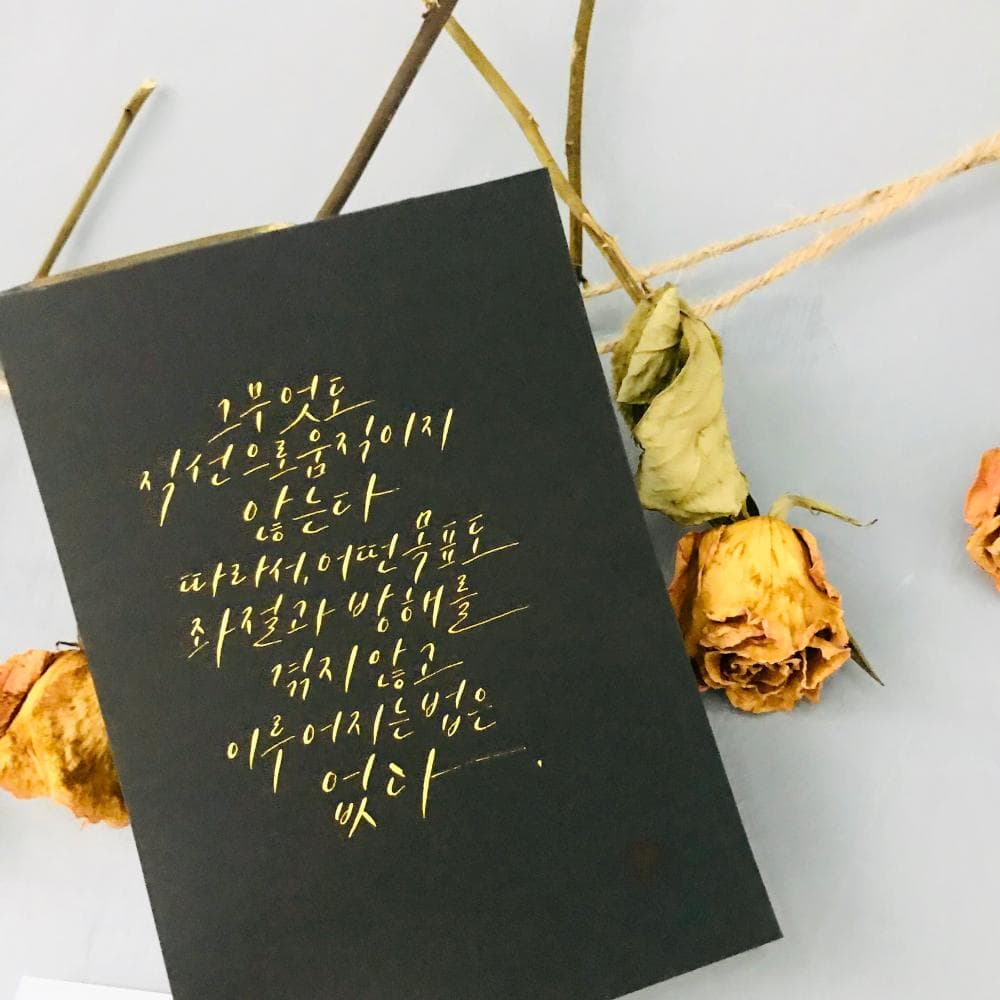 그무엇도
직선으로움직이지
않는다
따라서, 어떤목표도
좌절과 방해를
겪지 않고
이루어지는법은
없다.